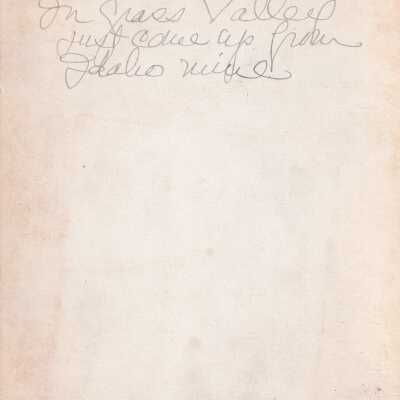 In Grass Valley
just come up from
Idaho mine